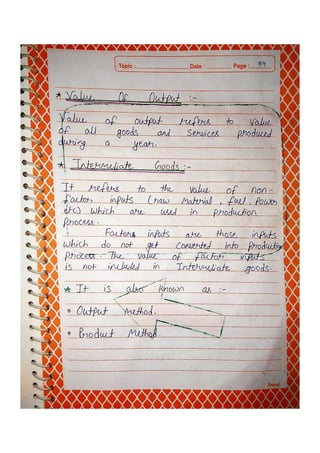 Topic : Date : Page : 04
* Value Of Output :-
Value of output refers to value
of all goods and services produced
during a year.
* Intermeliate Goods :-
It refers to the value of non-
factor inputs (raw material, fuel, power
etc) which are used in production
process.
Factors inputs are those inputs
which do not get converted into production
process. The value of factor inputs
is not included in Intermeliate goods.
* It is also known as :-
• Output method.
• Product Method.